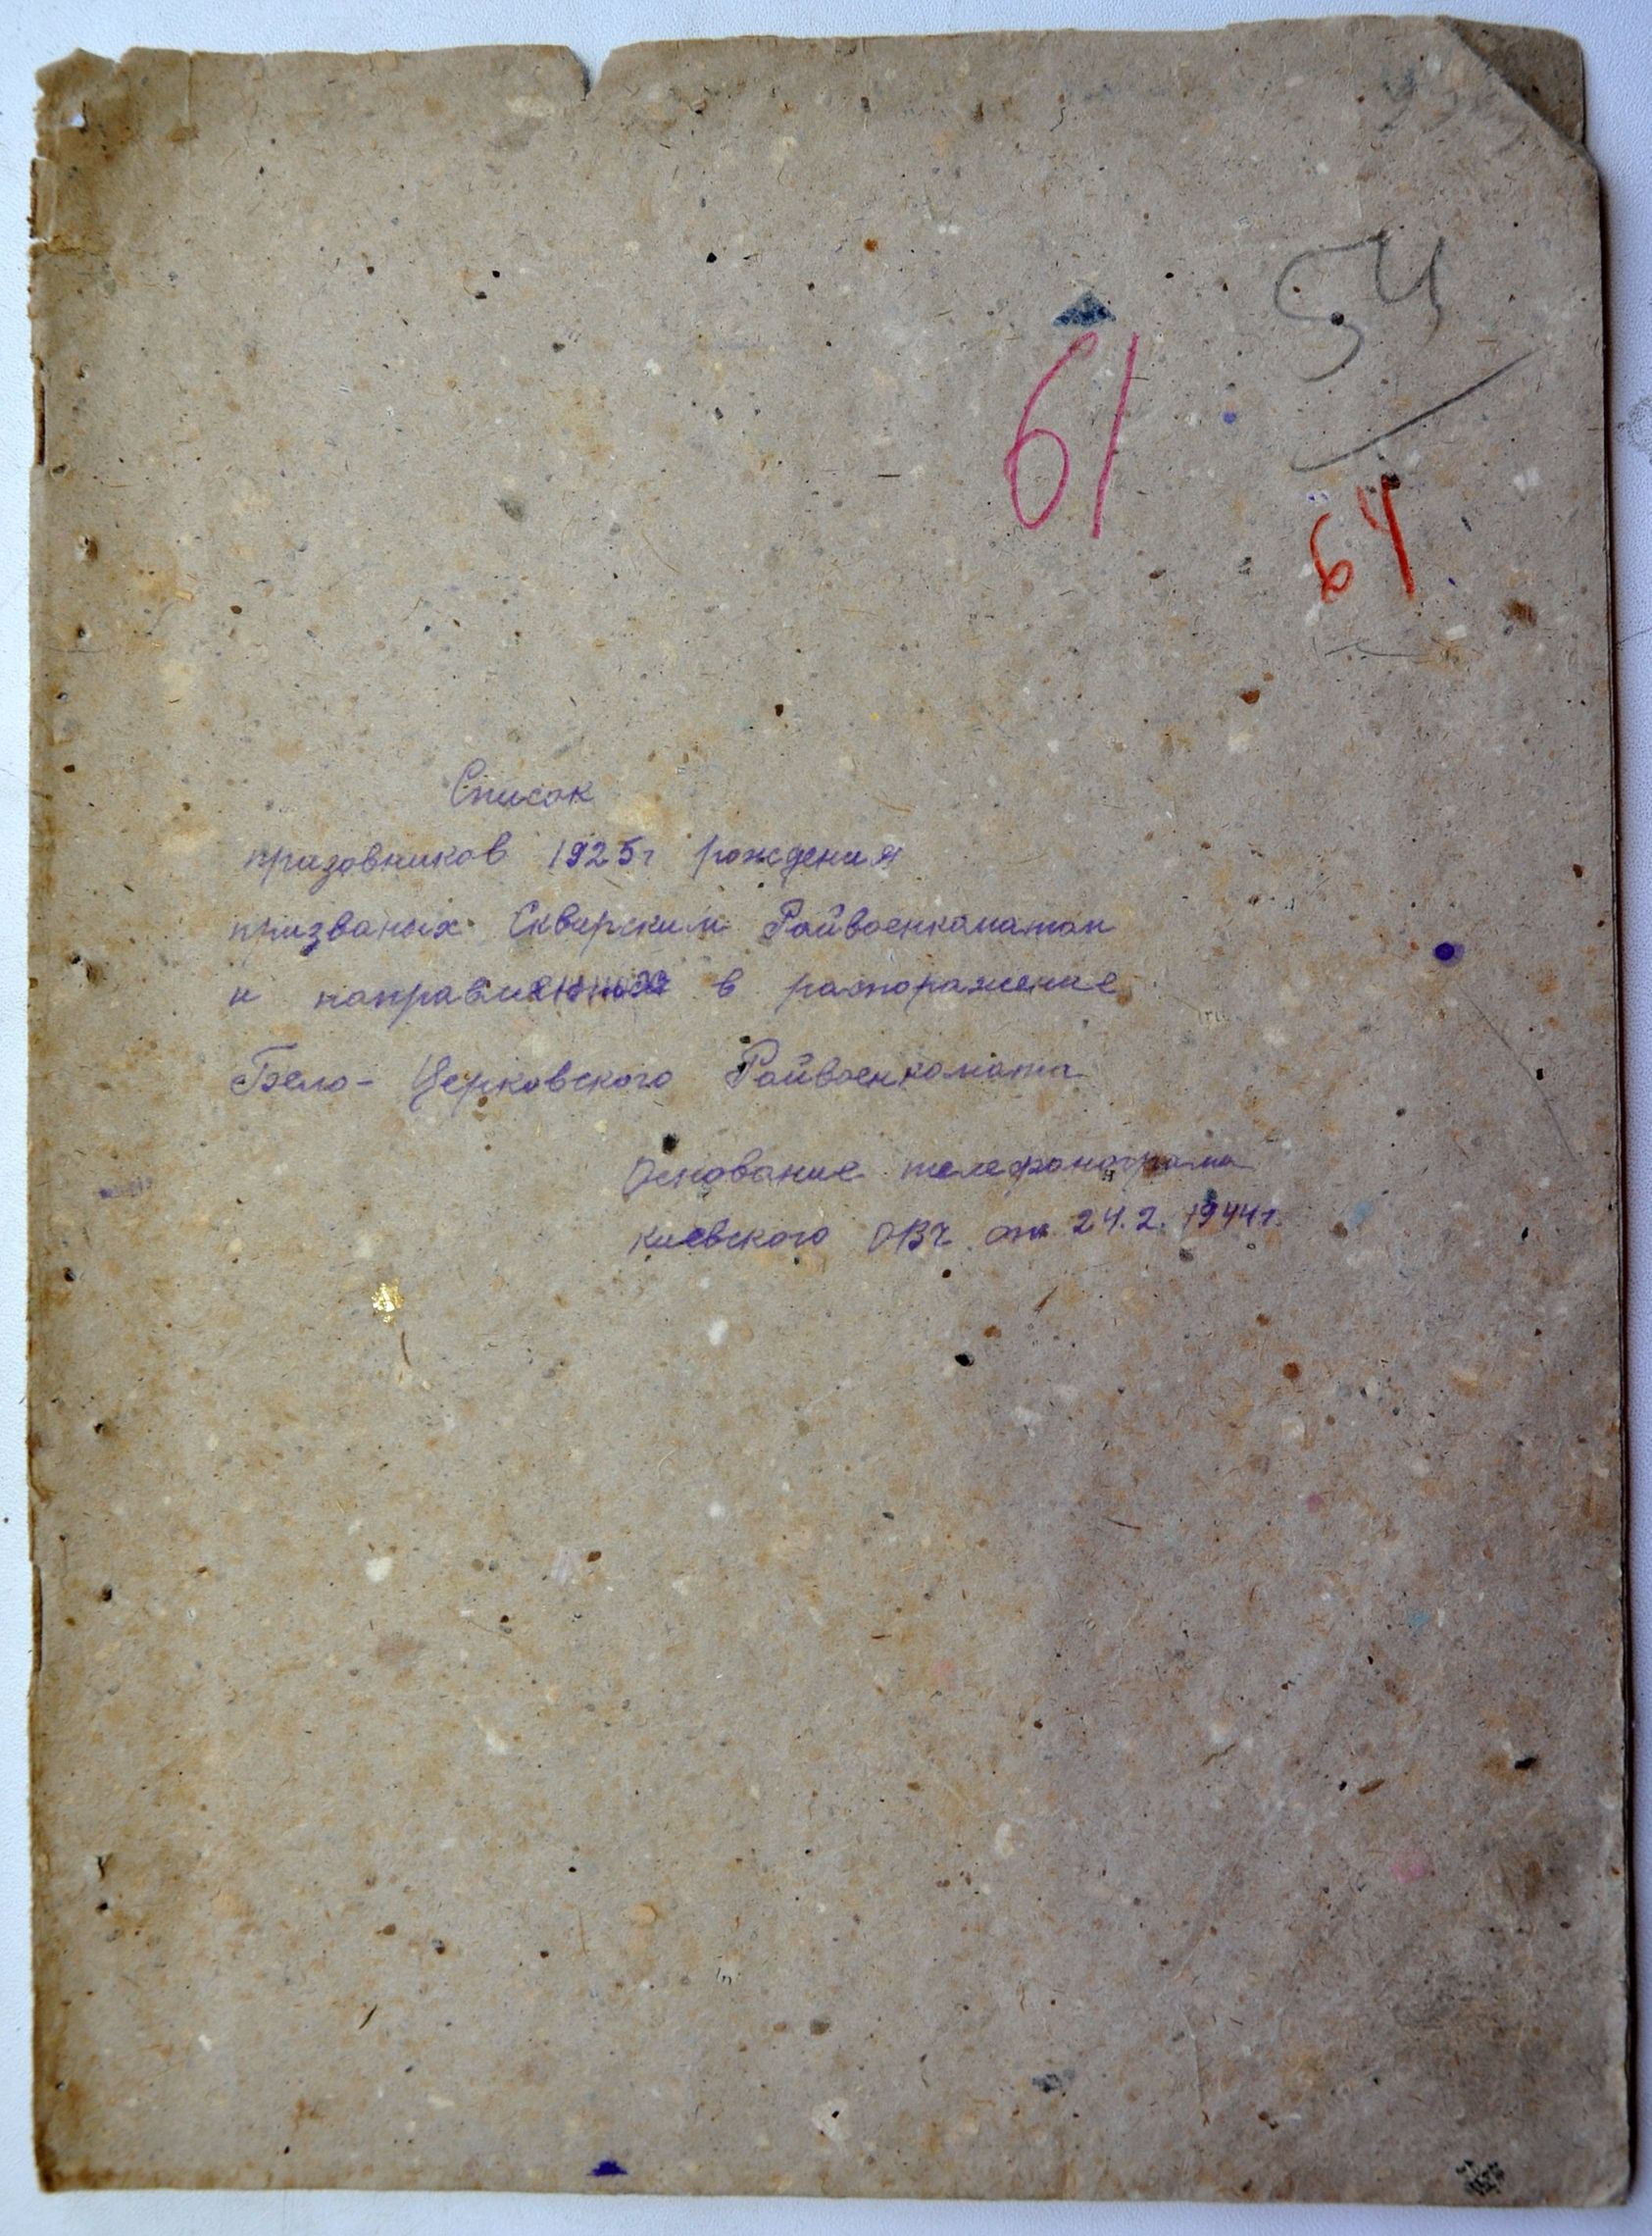 54
61
64
Список
призовников 1925г рождения
призваных Сквирским Райвоенкоматом
и направленных в распоражение
Бело-Церковского Райвоенкомата
Основание телефонограма
киевского ОВК от 24.2.1944г.